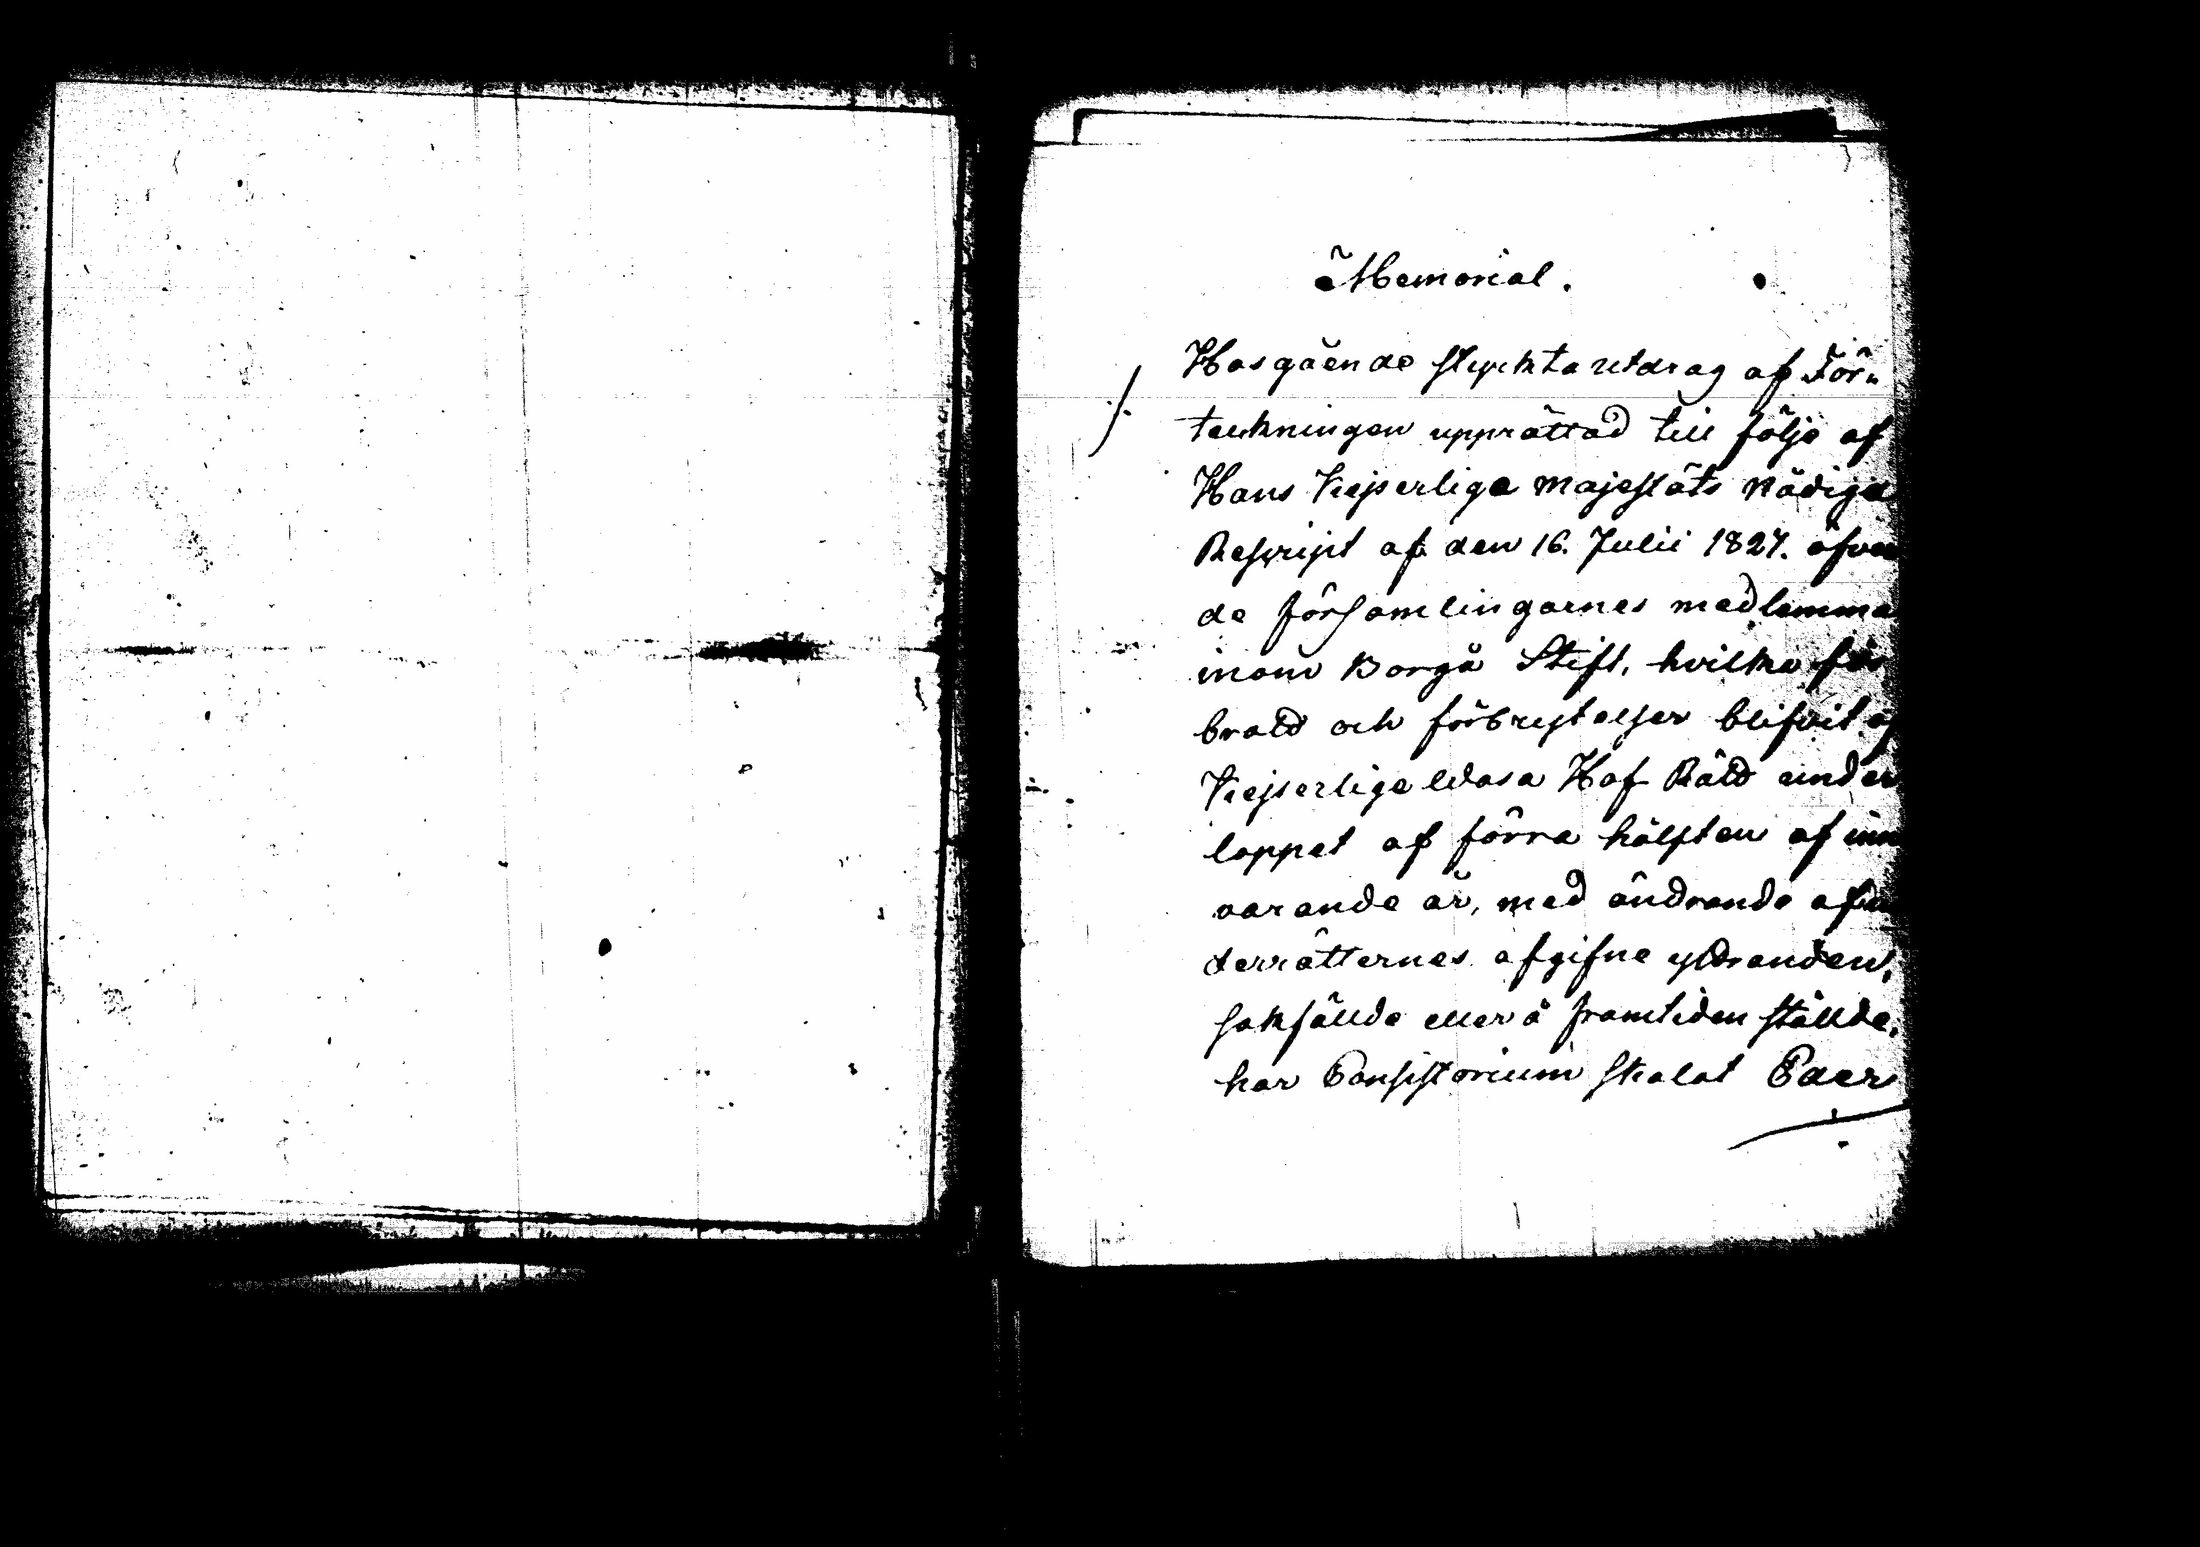 Memorial.
Hosgående styckta utdrag af För„
teckningen upprättad till följe af
Hans Kejserliga Majestäts Nådiga
Rescript af den 16. Julii 1827. öfver
de församlingarnes medlemmar
inom Borgå Stift, hvilka för
brott och förbrytelser blifvit af
Kejserliga Wasa Hof Rätt under
loppet af förra hälften af inne
varande år, med ändrande af un
derrätternes afgifne yttranden,
sakfällde eller å framtiden ställde,
har Consistorium skolat Eder